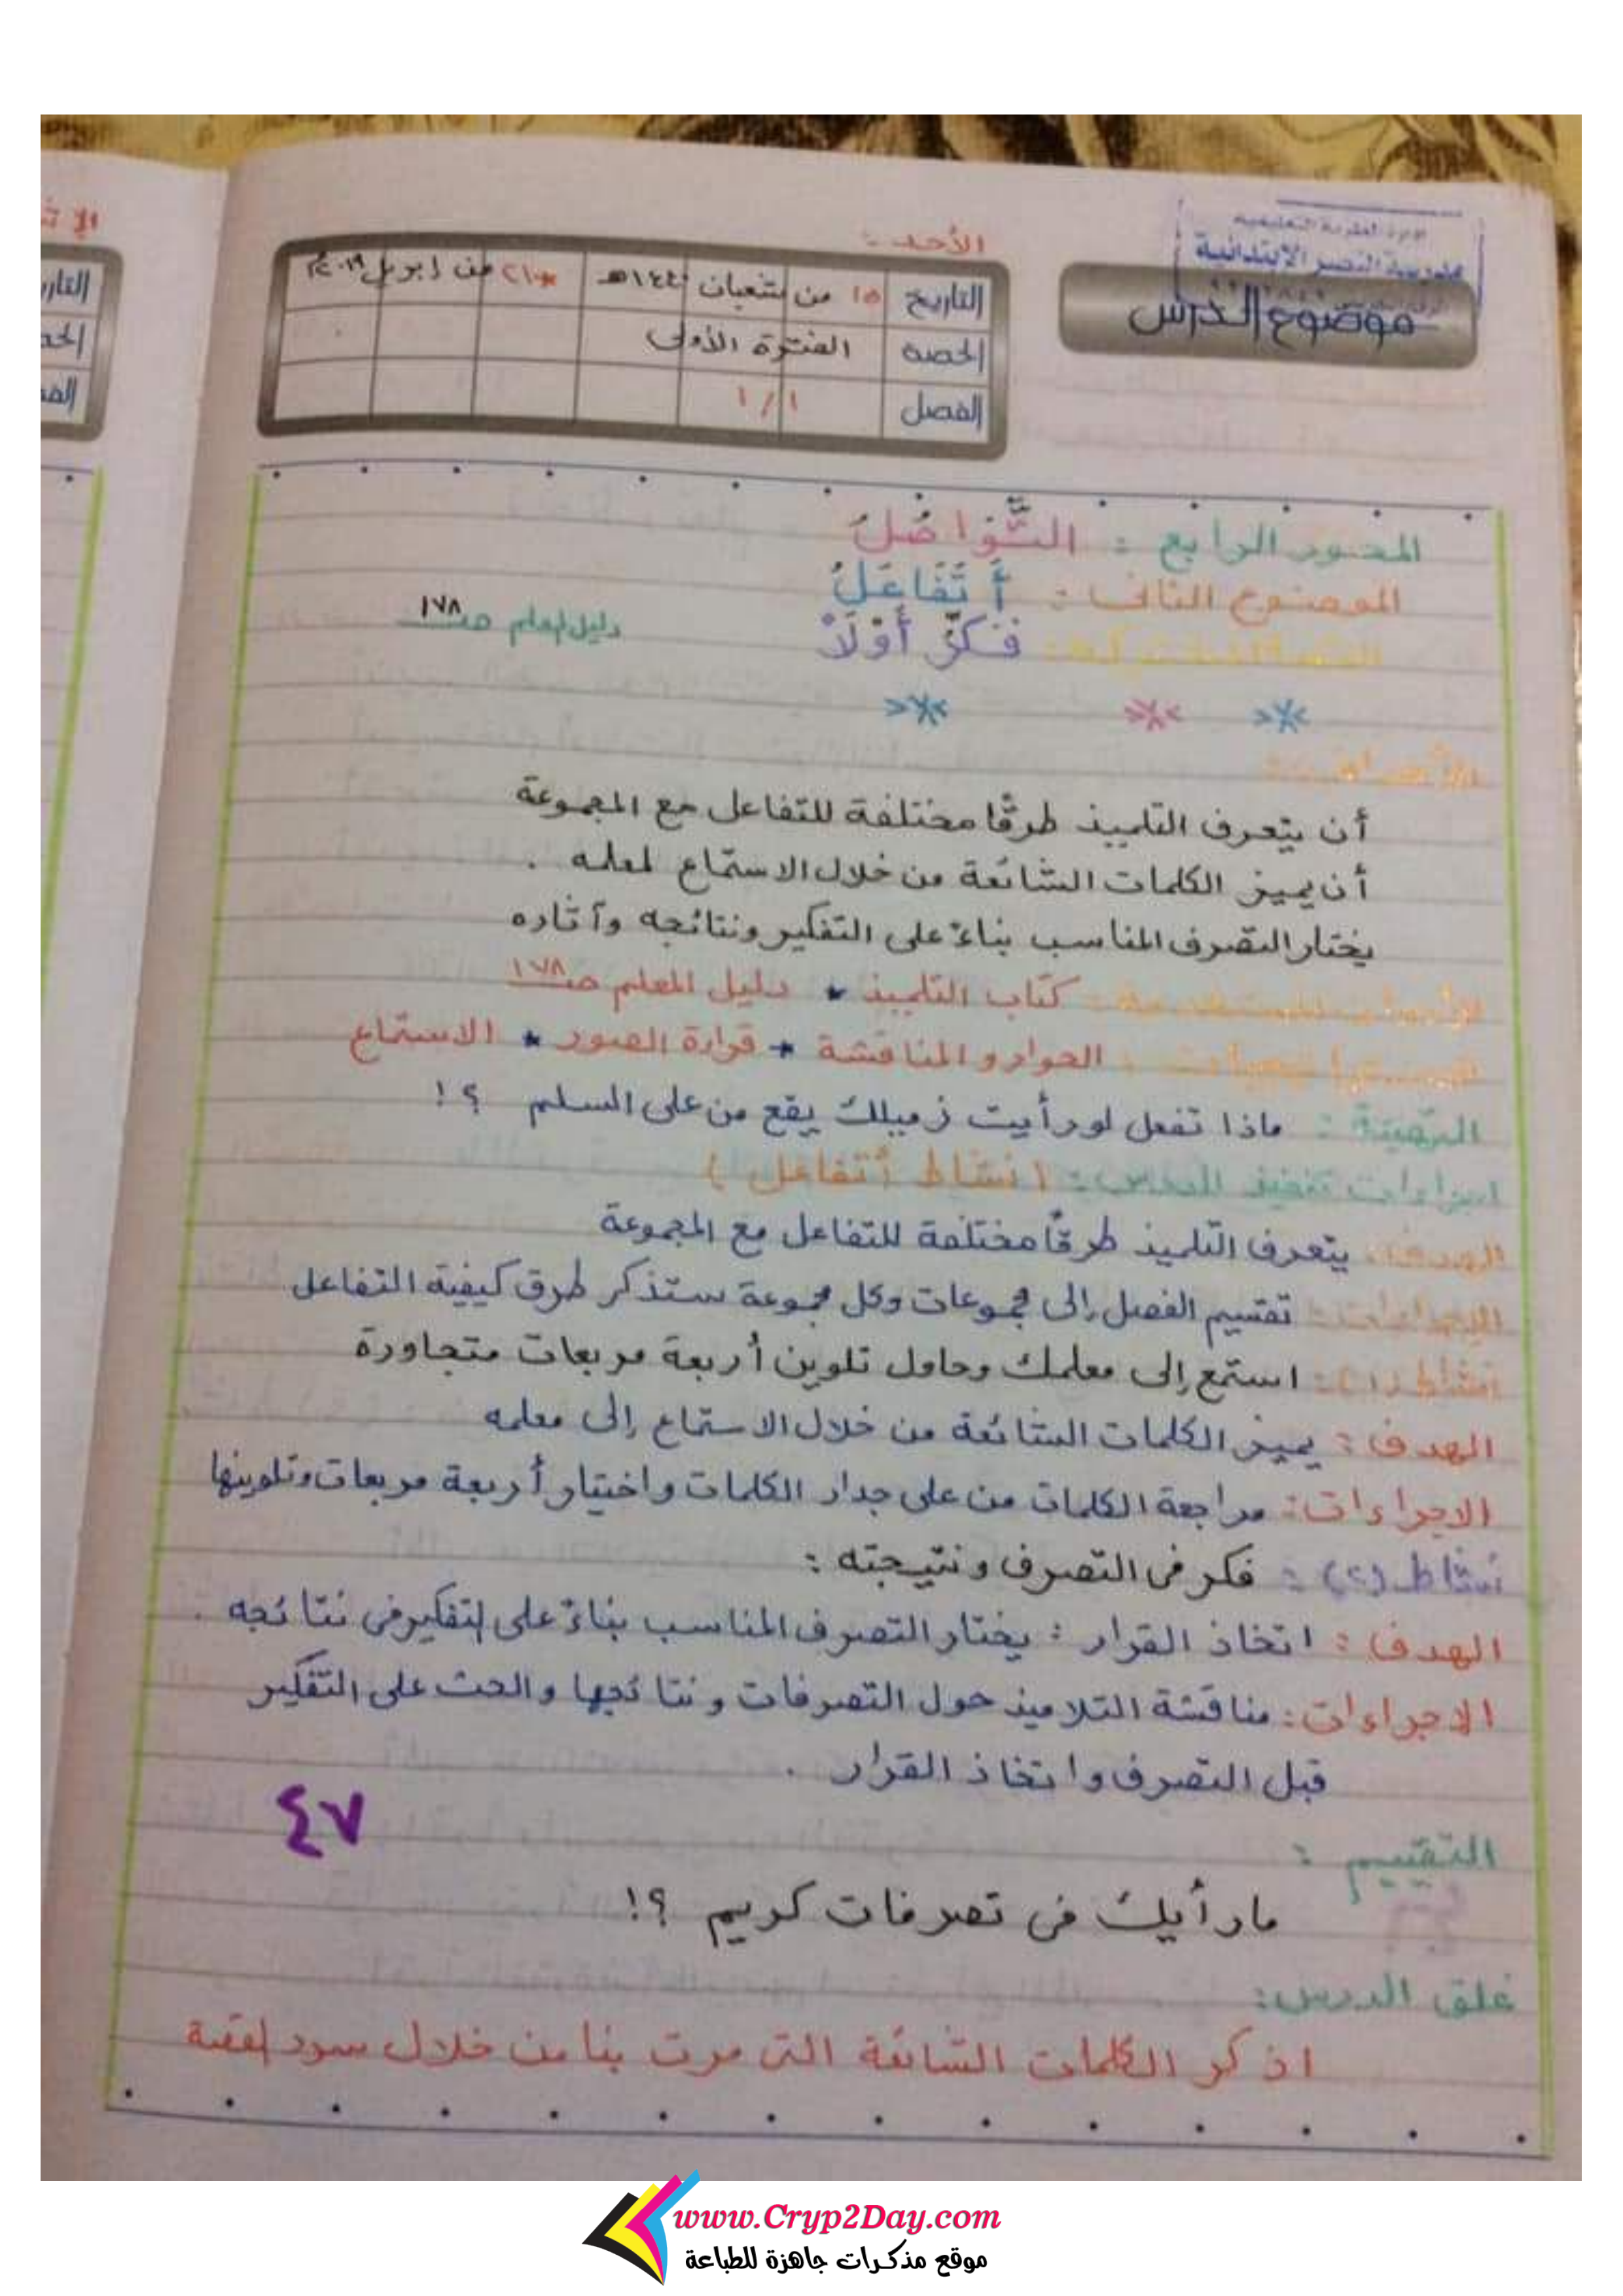 الأحد :
موضوع الدرس
التاريخ ١٥ من شعبان ١٤٤٠هـ ٢١ من إبريل ٢٠١٩م
الحصة الفترة الأولى
الفصل ١/١
المحور الرابع : التَّوَاصُلُ
الموضوع الثانى : أَتَفَاعَلُ
فَكِّرْ أَوَّلًا
دليل المعلم صـ١٧٨
الأهداف :
أن يتعرف التلميذ طرقًا مختلفة للتفاعل مع المجموعة
أن يميز الكلمات الشائعة من خلال الاستماع لمعلمه .
يختار التصرف المناسب بناءً على التفكير ونتائجه وآثاره
كتاب التلميذ * دليل المعلم صـ١٧٨
الحوار والمناقشة * قراءة الصور * الاستماع
التهيئة : ماذا تفعل لو رأيت زميلك يقع من على السلم ؟!
اجراءات تنفيذ الدرس : ( نشاط أتفاعل )
الهدف : يتعرف التلميذ طرقًا مختلفة للتفاعل مع المجموعة
الإجراءات : تقسيم الفصل إلى مجموعات وكل مجموعة ستذكر طرق كيفية التفاعل
نشاط (١) : استمع إلى معلمك وحاول تلوين أربعة مربعات متجاورة
الهدف : يميز الكلمات الشائعة من خلال الاستماع إلى معلمه
الاجراءات : مراجعة الكلمات من على جدار الكلمات واختيار أربعة مربعات وتلوينها
نشاط (٢) : فكر فى التصرف ونتيجته :
الهدف : اتخاذ القرار : يختار التصرف المناسب بناءً على التفكير فى نتائجه .
الاجراءات : مناقشة التلاميذ حول التصرفات ونتائجها والحث على التفكير
قبل التصرف واتخاذ القرار .
٤٧
التقييم :
ما رأيك فى تصرفات كريم ؟!
غلق الدرس :
اذكر الكلمات الشائعة التى مرت بنا من خلال سرد القصة
www.Cryp2Day.com
موقع مذكرات جاهزة للطباعة